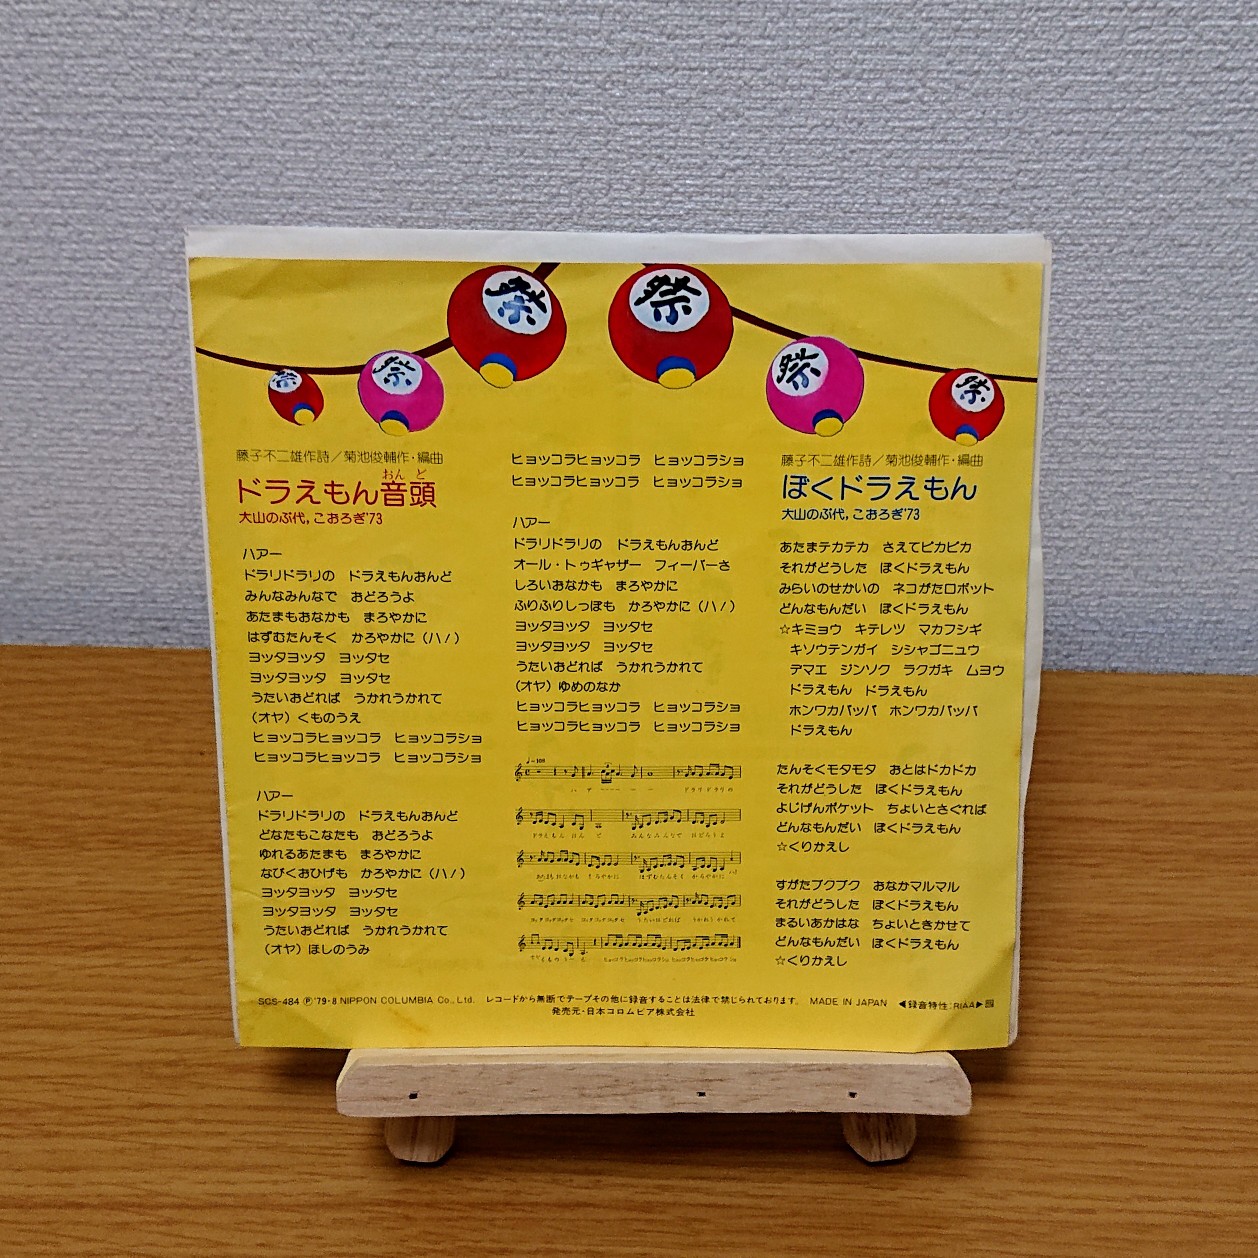 祭
祭
祭
祭
祭
祭
藤子不二雄作詩／菊池俊輔作・編曲
おんど
ドラえもん音頭
大山のぶ代,こおろぎ'73
ハアー
ドラリドラリの　ドラえもんおんど
みんなみんなで　おどろうよ
あたまもおなかも　まろやかに
はずむたんそく　かろやかに（ハ！）
ヨッタヨッタ　ヨッタセ
ヨッタヨッタ　ヨッタセ
うたいおどれば　うかれうかれて
（オヤ）くものうえ
ヒョッコラヒョッコラ　ヒョッコラショ
ヒョッコラヒョッコラ　ヒョッコラショ
ハアー
ドラリドラリの　ドラえもんおんど
どなたもこなたも　おどろうよ
ゆれるあたまも　まろやかに
なびくおひげも　かろやかに（ハ！）
ヨッタヨッタ　ヨッタセ
ヨッタヨッタ　ヨッタセ
うたいおどれば　うかれうかれて
（オヤ）ほしのうみ
ヒョッコラヒョッコラ　ヒョッコラショ
ヒョッコラヒョッコラ　ヒョッコラショ
ハアー
ドラリドラリの　ドラえもんおんど
オール・トゥギャザー　フィーバーさ
しろいおなかも　まろやかに
ふりふりしっぽも　かろやかに（ハ！）
ヨッタヨッタ　ヨッタセ
ヨッタヨッタ　ヨッタセ
うたいおどれば　うかれうかれて
（オヤ）ゆめのなか
ヒョッコラヒョッコラ　ヒョッコラショ
ヒョッコラヒョッコラ　ヒョッコラショ
藤子不二雄作詩／菊池俊輔作・編曲
ぼくドラえもん
大山のぶ代,こおろぎ'73
あたまテカテカ　さえてピカピカ
それがどうした　ぼくドラえもん
みらいのせかいの　ネコがたロボット
どんなもんだい　ぼくドラえもん
☆キミョウ　キテレツ　マカフシギ
キソウテンガイ　シシャゴニュウ
デマエ　ジンソク　ラクガキ　ムヨウ
ドラえもん　ドラえもん
ホンワカパッパ　ホンワカパッパ
ドラえもん
たんそくモタモタ　おとはドカドカ
それがどうした　ぼくドラえもん
よじげんポケット　ちょいとさぐれば
どんなもんだい　ぼくドラえもん
☆くりかえし
すがたブクブク　おなかマルマル
それがどうした　ぼくドラえもん
まるいあかはな　ちょいときかせて
どんなもんだい　ぼくドラえもん
☆くりかえし
SCS-484 Ⓟ'79・8 NIPPON COLUMBIA Co., Ltd.　レコードから無断でテープその他に録音することは法律で禁じられております。　MADE IN JAPAN　◀録音特性:RIAA▶
発売元・日本コロムビア株式会社